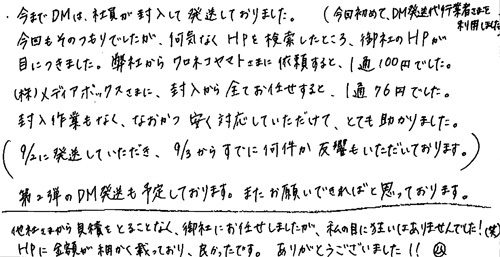 ・今までDMは、社員が封入して発送しておりました。(今回初めて、DM発送代行業者さまを利用しました)
今回もそのつもりでしたが、何気なくHPを検索したところ、御社のHPが
目につきました。弊社からクロネコヤマトさまに依頼すると、1通100円でした。
(株)メディアボックスさまに、封入から全てお任せすると、1通76円でした。
封入作業もなく、なおかつ安く対応していただけて、とても助かりました。
(9/2に発送していただき、9/3からすでに何件か反響もいただいております。)
第2弾のDM発送も予定しております。またお願いできればと思っております。
他社さまから見積をとることなく、御社にお任せしましたが、私の目に狂いはありませんでした!(笑)
HPに金額が細かく載っており、良かったです。ありがとうございました!!